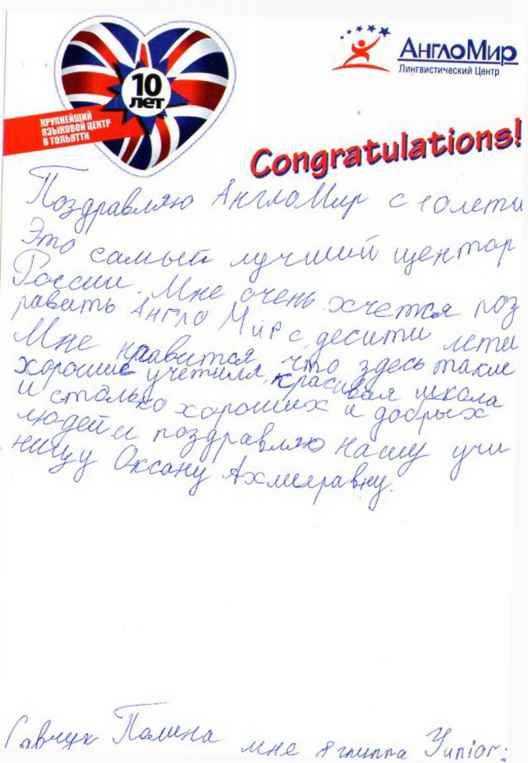 10
ЛЕТ
КРУПНЕЙШИЙ
ЯЗЫКОВОЙ ЦЕНТР
В ТОЛЬЯТТИ
АнглоМир
Лингвистический Центр
Congratulations!
Поздравляю АнглоМир с 10лети
Это самый лучший центор
России. Мне очень хчется поз
равить Англо Мир с десити лети
Мне нравится, что здесь такие
хорошие учетиля, красивая школа
и столько хороших и добрых
людей и поздравляю нашу учи
ницу Оксану
Савчук Полина мне 8 группа Junior: